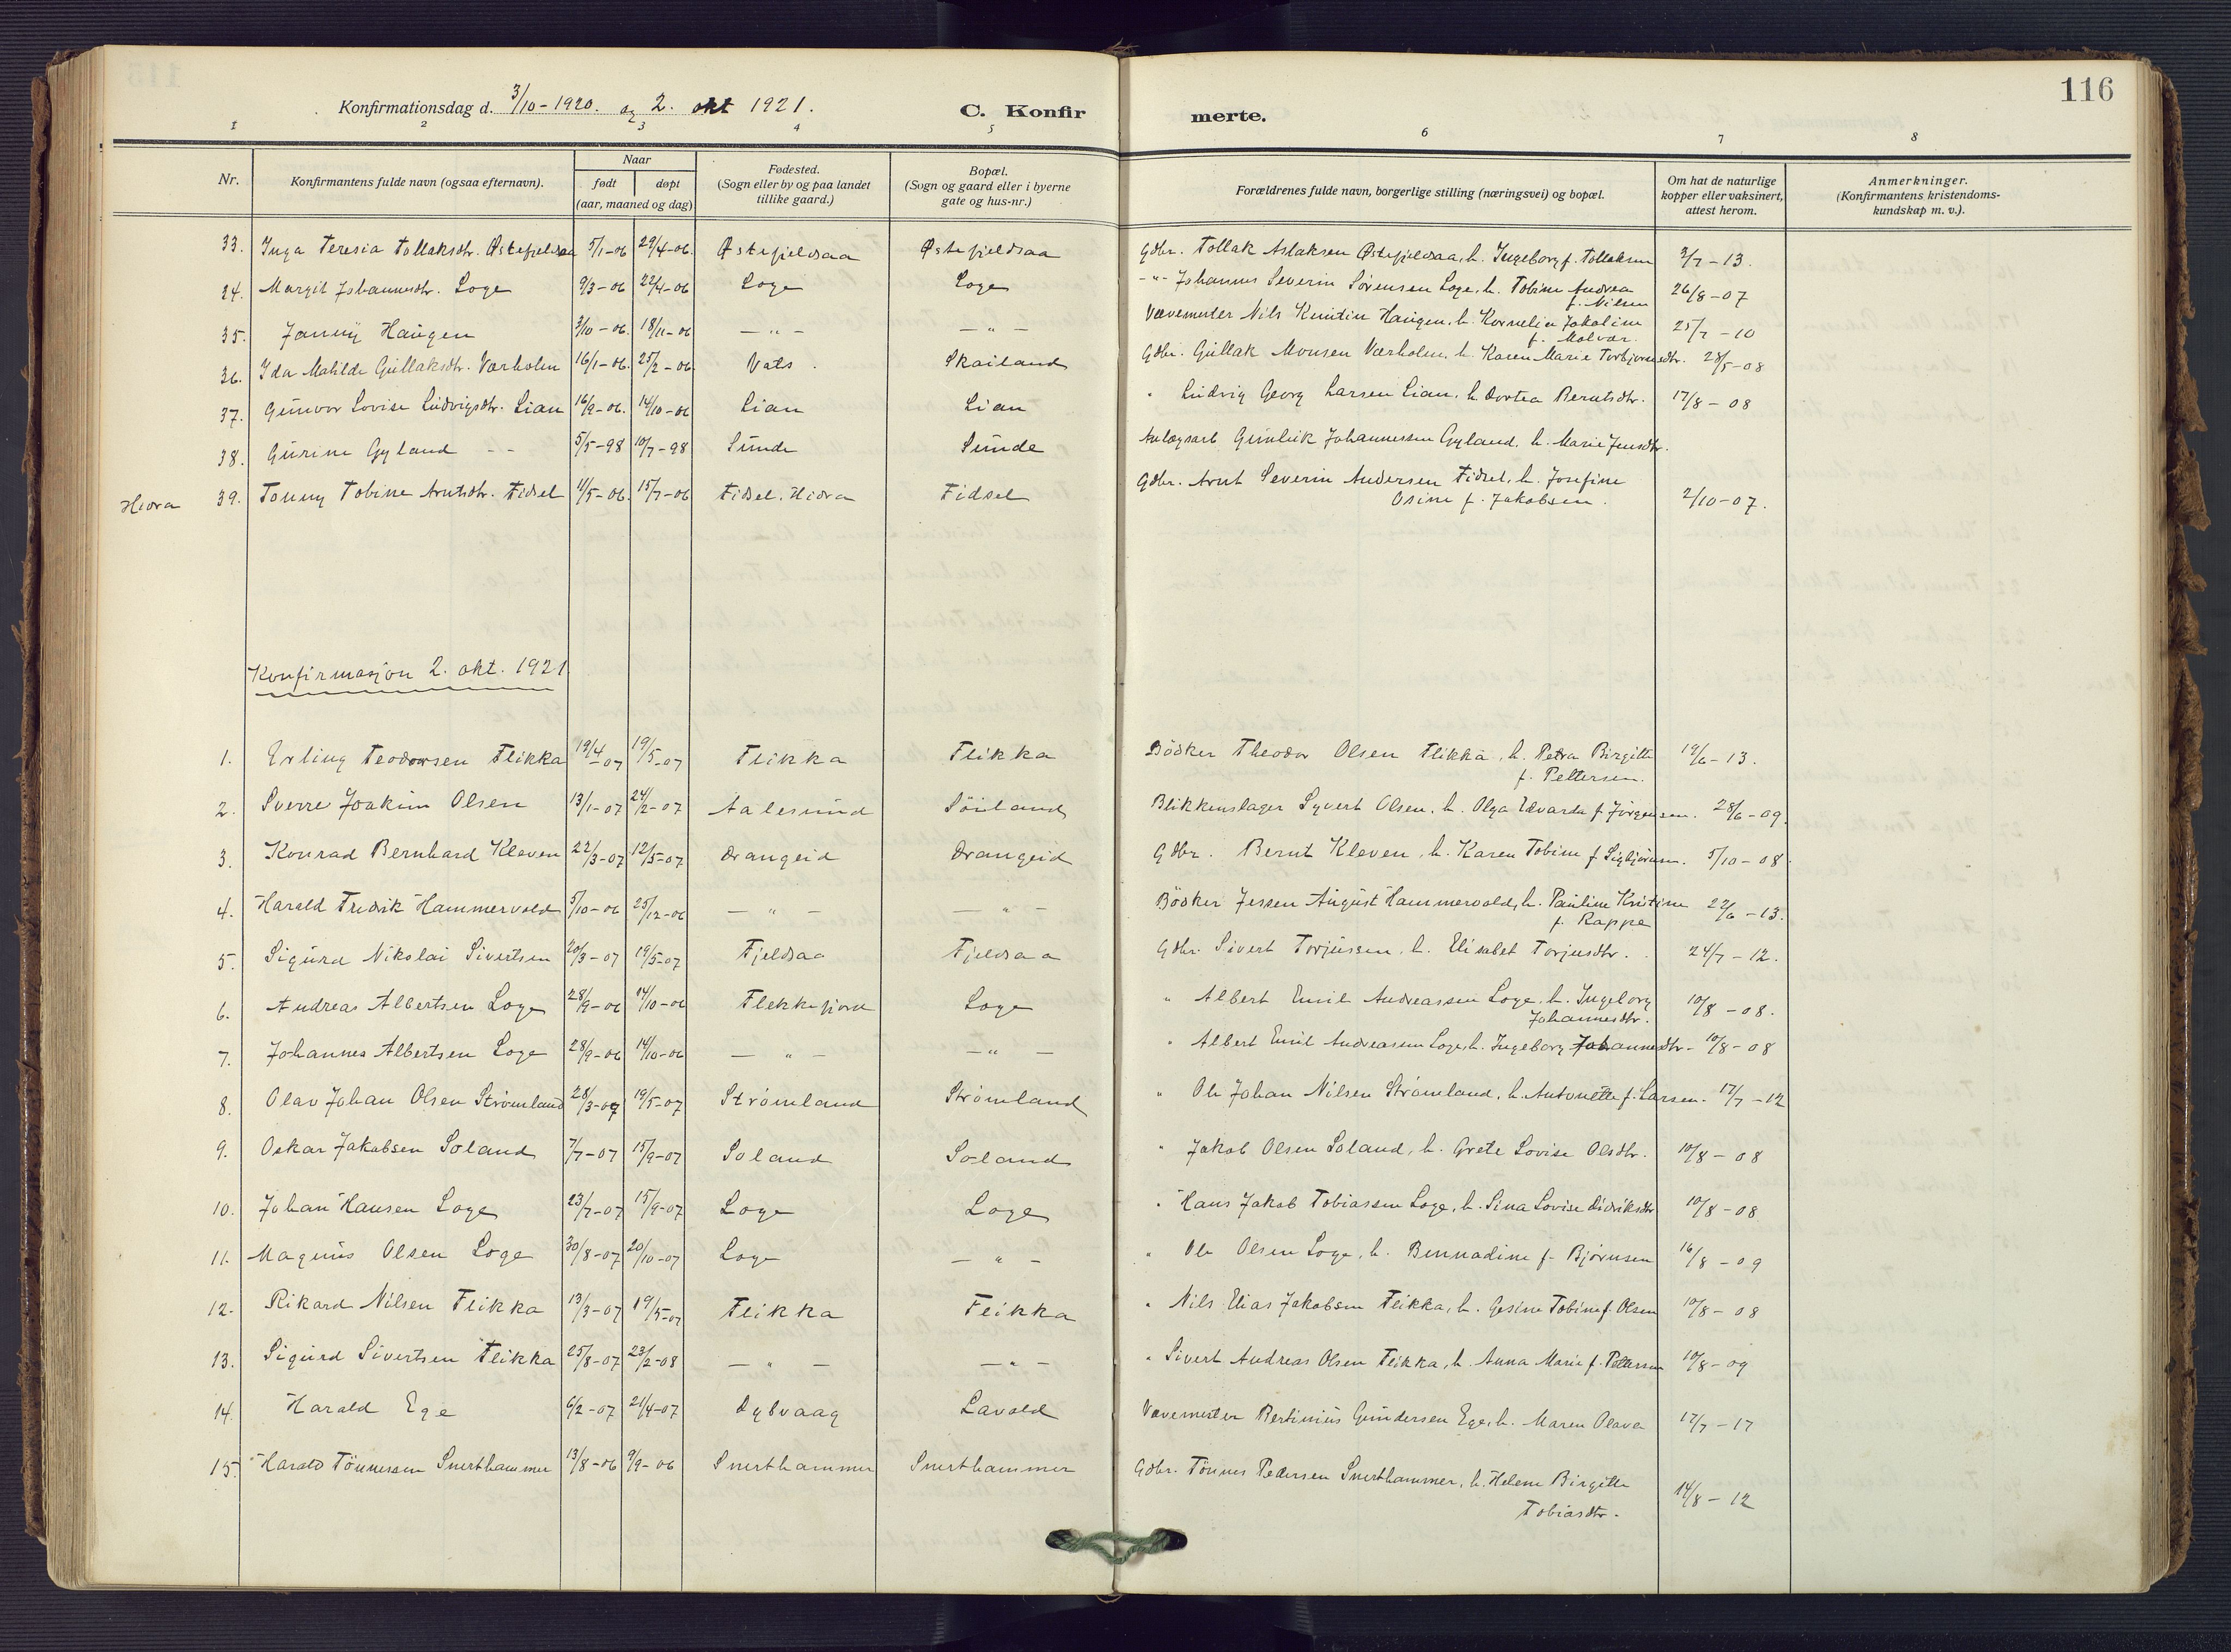 116
Konfirmationsdag d. 3/10-1920. og 2. okt 1921.
C. Konfirmerte.
1 2 3 4 5 6 7 8
Nr.
Konfirmantens fulde navn (ogsaa efternavn).
Naar
født døpt
(aar, maaned og dag)
Fødested.
(Sogn eller by og paa landet
tillike gaard.)
Bopæl.
(Sogn og gaard eller i byerne
gate og hus-nr.)
Forældrenes fulde navn, borgerlige stilling (næringsvei) og bopæl.
Om hat de naturlige
kopper eller vaksinert,
attest herom.
Anmerkninger.
(Konfirmantens kristendoms-
kundskap m. v.).
33. Inga Teresia Tollaksdtr. Østefjeldsaa 5/1-06 29/4-06. Østefjeldsaa Østefjeldsaa Gdbr. Tollak Aslaksen Østefjeldsaa, h. Ingeborg f. Tollaksen 3/7-13.
34. Margit Johannesdtr. Loge 9/3-06 22/4-06 Loge Loge -"- Johannes Severin Sørensen Loge, h. Tobine Andrea
f. Nilsen 26/8-07
35. Janny Haugen 3/10-06. 18/11-06 -"- -"- Vævemester Nils Haugen, h. Kornelia Jakobine
25/7-10
36. Ida Matilde Gullaksdtr. Værholm 16/1-06. 25/2-06. Vats. Skailand Gdbr. Gullak Monsen Værholm, h. Karen Marie Torbjørnsdtr. 28/5-08
37. Gunvor Lovise Ludvigsdtr. Lian 16/9-06. 14/10-06 Lian Lian " Ludvig Georg Larsen Lian, h. Dortea Berntsdtr. 17/8-08
38. Gurine Gyland -- 5/5-98 10/7-98 Sunde Sunde Anlægsarb Gunleik Johannessen Gyland, h. Marie Jensdtr.
Hidra 39. Tonny Tobine Arntsdtr. Fidsel 11/5-06. 15/7-06 Fidsel, Hidra Fidsel Gdbr. Arnt Severin Andersen Fidsel, h. Josefine
Osine f. Jakobsen. 2/10-07.
Konfirmasjon 2. okt. 1921
1. Erling Teodorsen Flikka 19/4-07 19/5-07 Flikka Flikka Bödker Theodor Olsen Flikka, h. Petra Birgitte
f. Pettersen. 19/6-13.
2. Sverre Joakim Olsen 13/1-07 24/2-07 Aalesund Söiland Blikkenslager Syvert Olsen, h. Olga Edvarda f. Jörgensen. 28/6-09.
3. Konrad Bernhard Kleven 22/3-07 12/5-07 Drangeid Drangeid Gdbr. Bernt Kleven, h. Karen Tobine f. Sigbjörnsen. 5/10-08.
4. Harald Fredrik Hammervold 5/10-06 25/12-06 -"- -"- Bödker Jessen August Hammervold, h. Pauline Kristine
f. Rappe 22/6-13.
5. Sigurd Nikolai Sivertsen 20/3-07 19/5-07 Fjeldsaa Fjeldsaa Gdbr. Sivert Torjussen, h. Elisabet Torjusdtr. 24/7-12.
6. Andreas Albertsen Loge 28/9-06 14/10-06 Flekkefjord Loge " Albert Emil Andreassen Loge, h. Ingeborg
Johannesdtr. 10/8-08.
7. Johannes Albertsen Loge 28/9-06 14/10-06 -"- -"- " Albert Emil Andreassen Loge, h. Ingeborg Johannesdtr- 10/8-08
8. Olav Johan Olsen Strömland 28/3-07 19/5-07 Strömland Strömland " Ole Johan Nilsen Strömland, h. Antonette f. Larsen. 17/7-12
9. Oskar Jakobsen Soland 7/7-07 15/9-07 Soland Soland " Jakob Olsen Soland, h. Grete Lovise Olsdtr. 10/8-08
10. Johan Hansen Loge 23/7-07 15/9-07 Loge Loge " Hans Jakob Tobiassen Loge, h. Sina Lovise Didriksdtr 10/8-08
11. Magnus Olsen Loge 30/8-07 20/10-07 Loge -"- " Ole Olsen Loge, h. Bennadine f. Björnsen 16/8-09
12. Rikard Nilsen Flikka 13/3-07 19/5-07 Flikka Flikka " Nils Elias Jakobsen Flikka, h. Gesine Tobine f. Olsen 10/8-08
13. Sigurd Sivertsen Flikka 25/8-07 23/2-08 -"- -"- " Sivert Andreas Olsen Flikka, h. Anna Marie f. Pettersen 10/8-09
14. Harald Ege 6/2-07 21/4-07 Dybvaag Lavold Vævemester Bertinius Gundersen Ege, h. Maren Olava 17/7-17
15. Harald Tönnessen Snerthammer 13/8-06 9/9-06 Snerthammer Snerthammer Gdbr. Tönnes Pedersen Snerthammer, h. Helene Birgitte
Tobiasdtr. 14/8-12